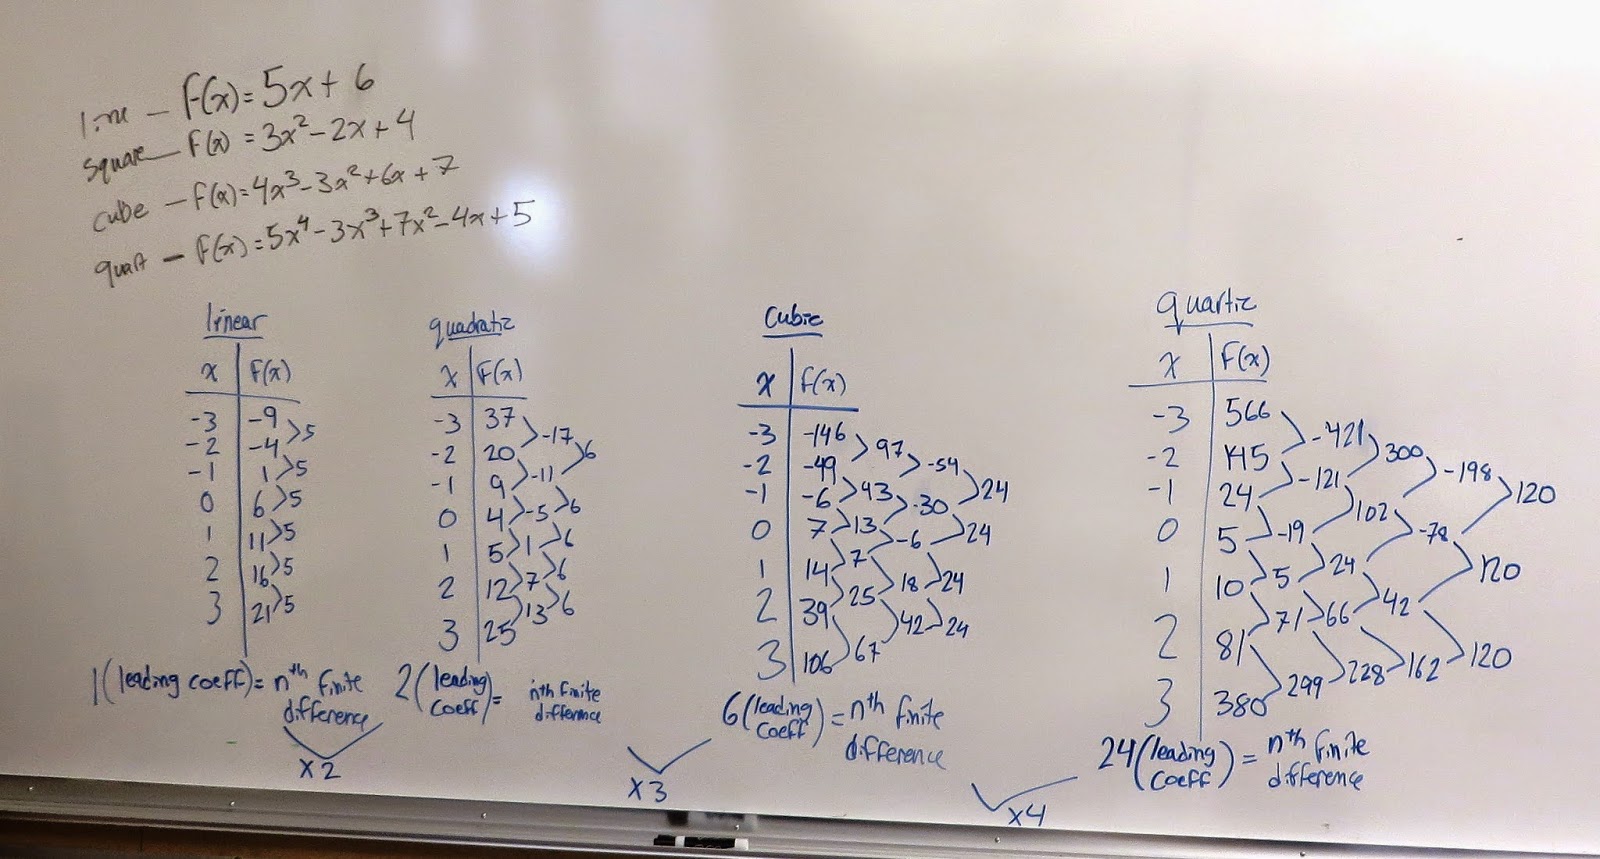 line – f(x) = 5x + 6
square – f(x) = 3x² – 2x + 4
cube – f(x) = 4x³ – 3x² + 6x + 7
quart – f(x) = 5x⁴ – 3x³ + 7x² – 4x + 5
linear
x f(x)
-3 -9
-2 -4
-1 1
0 6
1 11
2 16
3 21
5
5
5
5
5
5
1(leading coeff) = nth finite
difference
quadratic
x f(x)
-3 37
-2 20
-1 9
0 4
1 5
2 12
3 25
-17
-11
-5
1
7
13
6
6
6
6
6
2(leading
coeff) = nth finite
difference
cubic
x f(x)
-3 -146
-2 -49
-1 -6
0 7
1 14
2 39
3 106
97
43
13
7
25
67
-54
-30
-6
18
42
24
24
24
24
6(leading
coeff) = nth finite
difference
quartic
x f(x)
-3 566
-2 145
-1 24
0 5
1 10
2 81
3 380
-421
-121
-19
5
71
299
300
102
24
66
228
-198
-78
42
162
120
120
120
24(leading
coeff) = nth finite
difference
x2
x3
x4